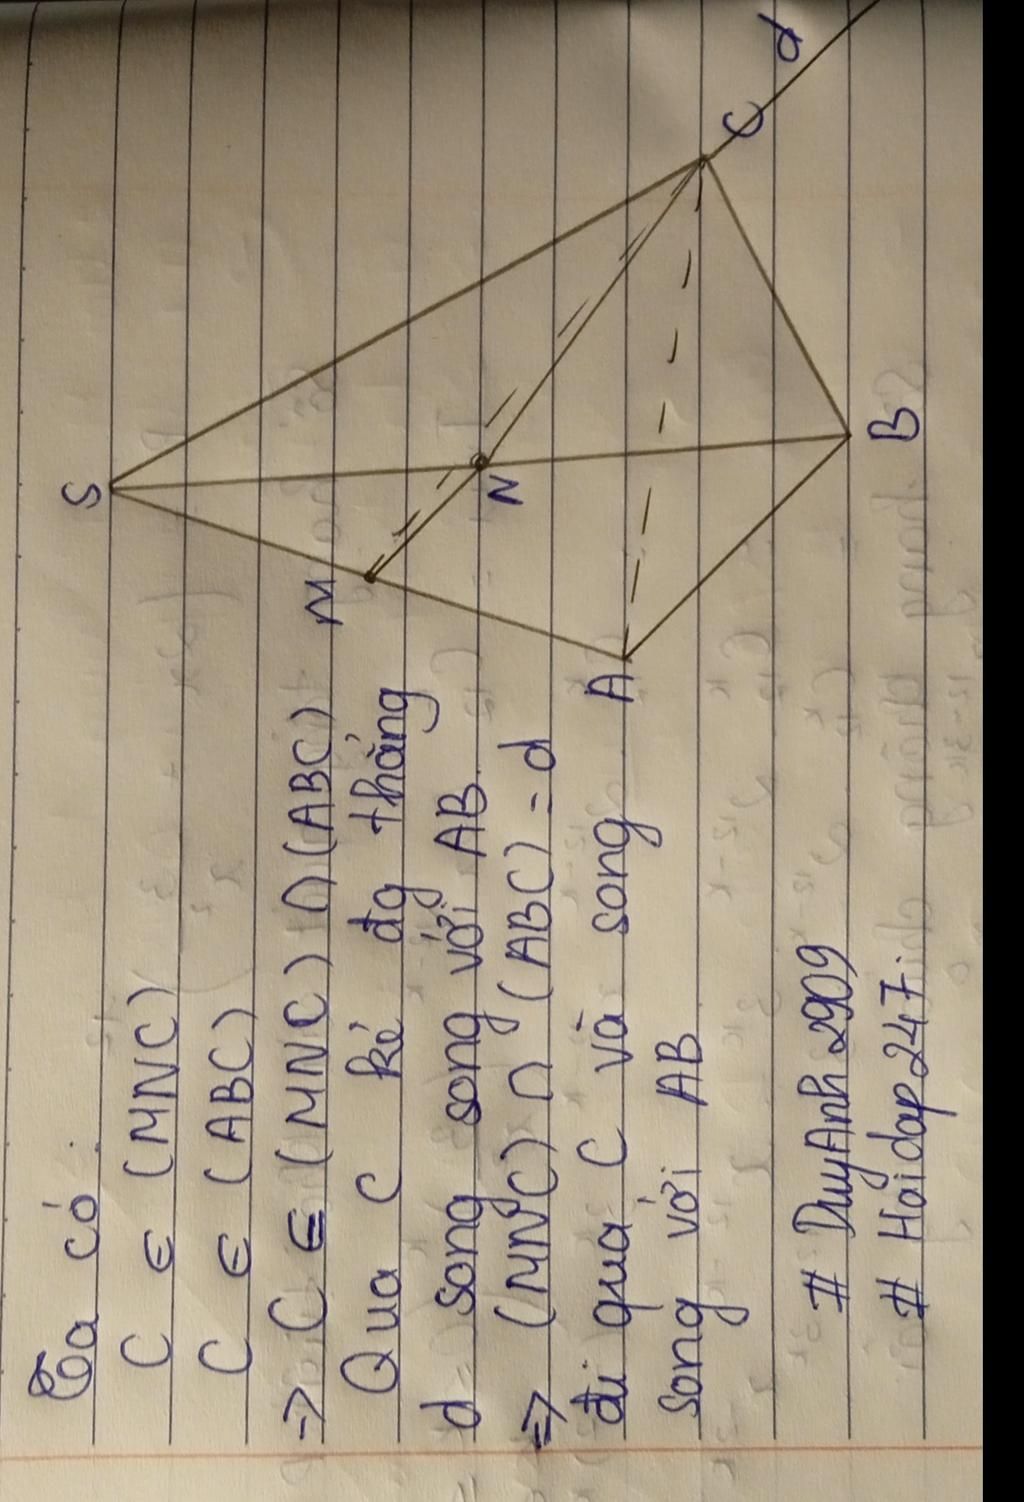 Ta có:
C ∈ (MNC)
C ∈ (ABC)
=> C ∈ (MNC) ∩ (ABC)
Qua C kẻ đg thẳng
d song song với AB
=> (MNC) ∩ (ABC) = d
đi qua C và song
song với AB
# DuyAnh2909
# Hoidap247.
S
M
N
A
B
C
d